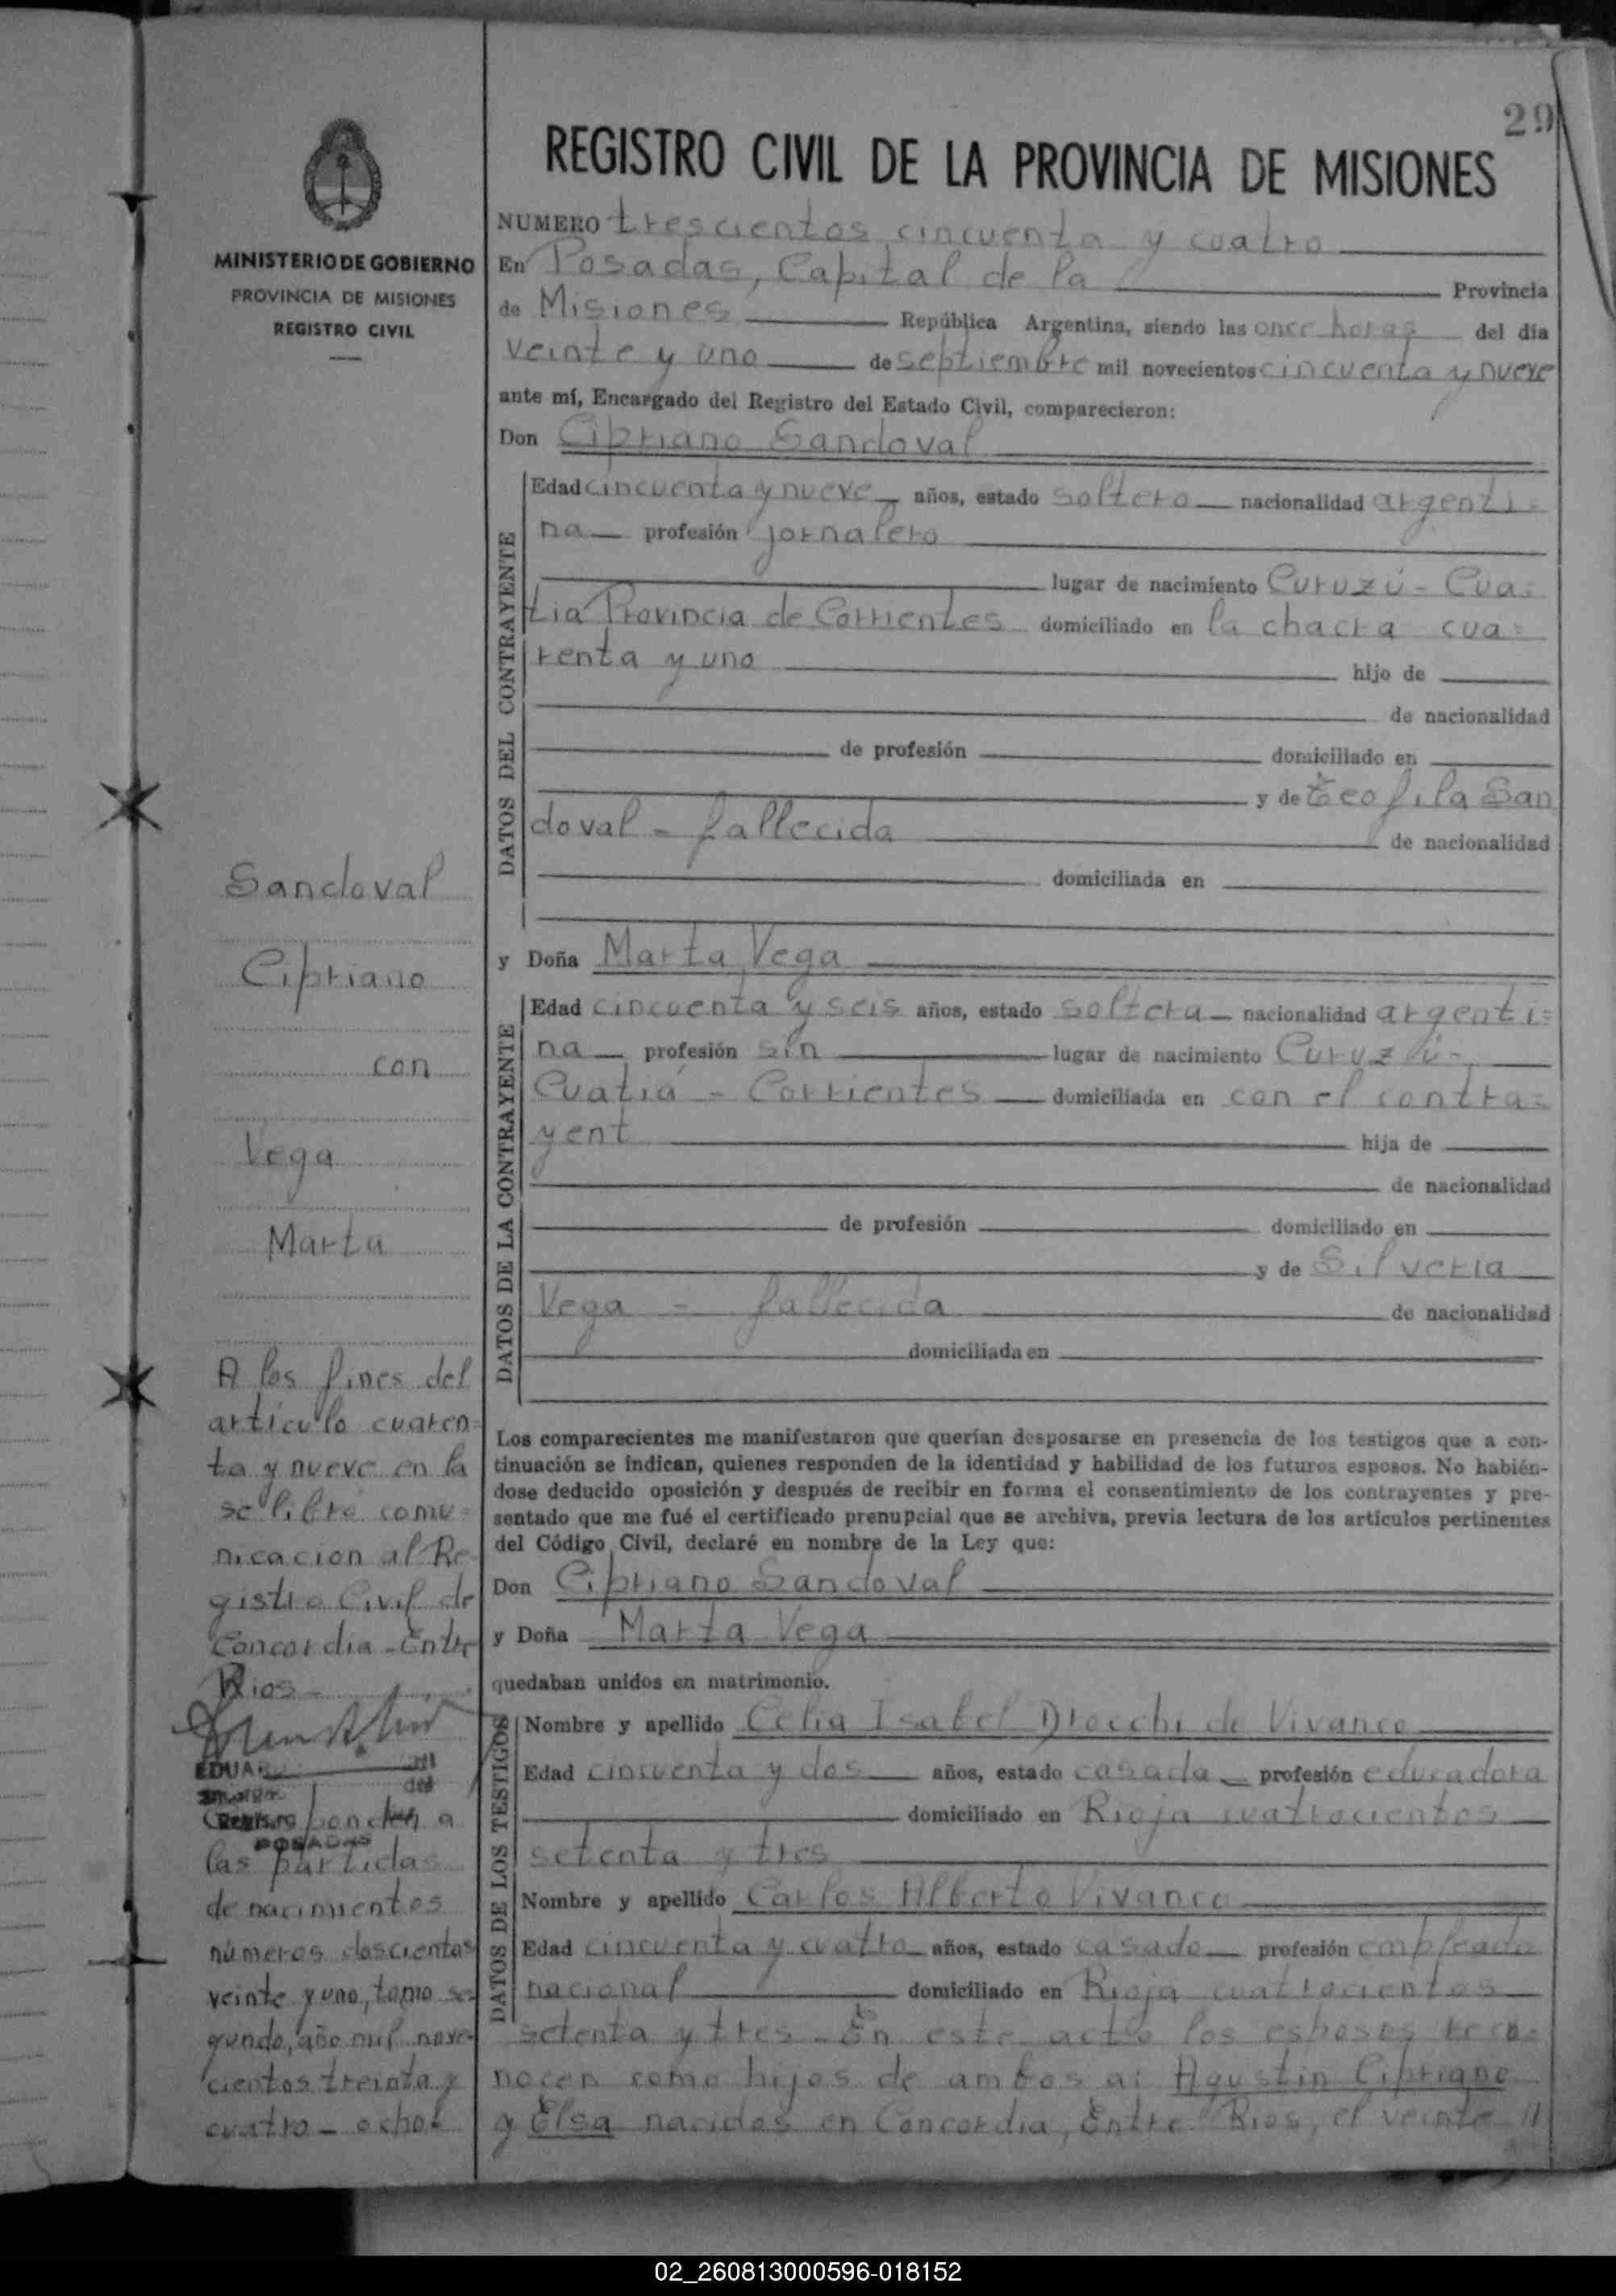 29
REGISTRO CIVIL DE LA PROVINCIA DE MISIONES
MINISTERIO DE GOBIERNO
PROVINCIA DE MISIONES
REGISTRO CIVIL
NUMERO trescientos cincuenta y cuatro
En Posadas, Capital de la Provincia
de Misiones República Argentina, siendo las once horas del día
veinte y uno de septiembre mil novecientos cincuenta y nueve
ante mí, Encargado del Registro del Estado Civil, comparecieron:
Don Cipriano Sandoval
DATOS DEL CONTRAYENTE
Edad cincuenta y nueve años, estado soltero nacionalidad argenti=
na profesión jornalero
lugar de nacimiento Curuzú-Cua=
tia Provincia de Corrientes domiciliado en la chacra cua=
renta y uno hijo de
de nacionalidad
de profesión domiciliado en
y de teofila San
doval - fallecida de nacionalidad
domiciliada en
y Doña Marta Vega
DATOS DE LA CONTRAYENTE
Edad cincuenta y seis años, estado soltera nacionalidad argenti=
na profesión sin lugar de nacimiento Curuzú-
Cuatiá - Corrientes domiciliada en con el contra=
yent hija de
de nacionalidad
de profesión domiciliado en
y de Silveria
Vega - fallecida de nacionalidad
domiciliada en
Los comparecientes me manifestaron que querían desposarse en presencia de los testigos que a con-
tinuación se indican, quienes responden de la identidad y habilidad de los futuros esposos. No habién-
dose deducido oposición y después de recibir en forma el consentimiento de los contrayentes y pre-
sentado que me fué el certificado prenupcial que se archiva, previa lectura de los artículos pertinentes
del Código Civil, declaré en nombre de la Ley que:
Don Cipriano Sandoval
y Doña Marta Vega
quedaban unidos en matrimonio.
DATOS DE LOS TESTIGOS
Nombre y apellido Celia Isabel Drocchi de Vivanco
Edad cincuenta y dos años, estado casada profesión educadora
domiciliado en Rioja cuatrocientos
setenta y tres
Nombre y apellido Carlos Alberto Vivanco
Edad cincuenta y cuatro años, estado casado profesión empleado
nacional domiciliado en Rioja cuatrocientos
setenta y tres - En este acto los esposos reco=
nocen como hijos de ambos a: Agustin Cipriano
y Elsa nacidos en Concordia, Entre Rios, el veinte //
Sandoval
Cipriano
con
Vega
Marta
A los fines del
artículo cuaren=
ta y nueve en la
se libró comu=
nicacion al Re
gistro Civil de
Concordia - Entre
Rios -
EDUA
Registro
POSADAS
las partidas
de nacimientos
números doscientos
veinte y uno, tomo se=
gundo, año mil nove=
cientos treinta y
cuatro - ocho
02_260813000596-018152